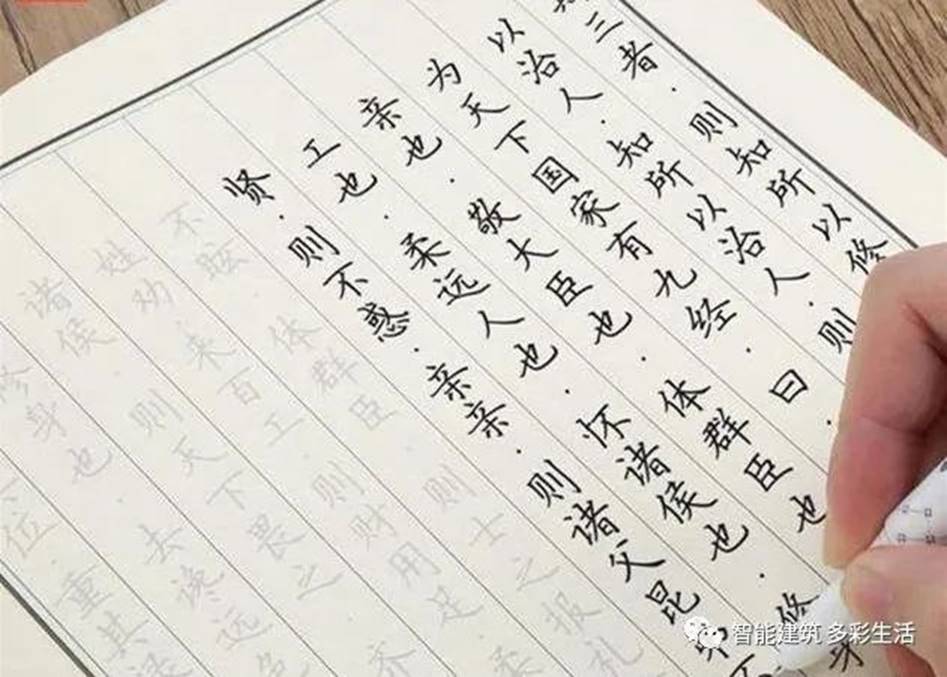 三者.则知所以修
以治人.知所以治人.则
为天下国家有九经.曰
亲也.敬大臣也.体群臣也
工也.柔远人也.怀诸侯也.修身
贤.则不惑.亲亲.则诸父昆弟不
不眩.体群臣.则士之报礼
姓劝.来百工.则财用足.柔
诸侯.则天下畏之.齐
修身也.去谗远色
位.重其禄
智能建筑 多彩生活